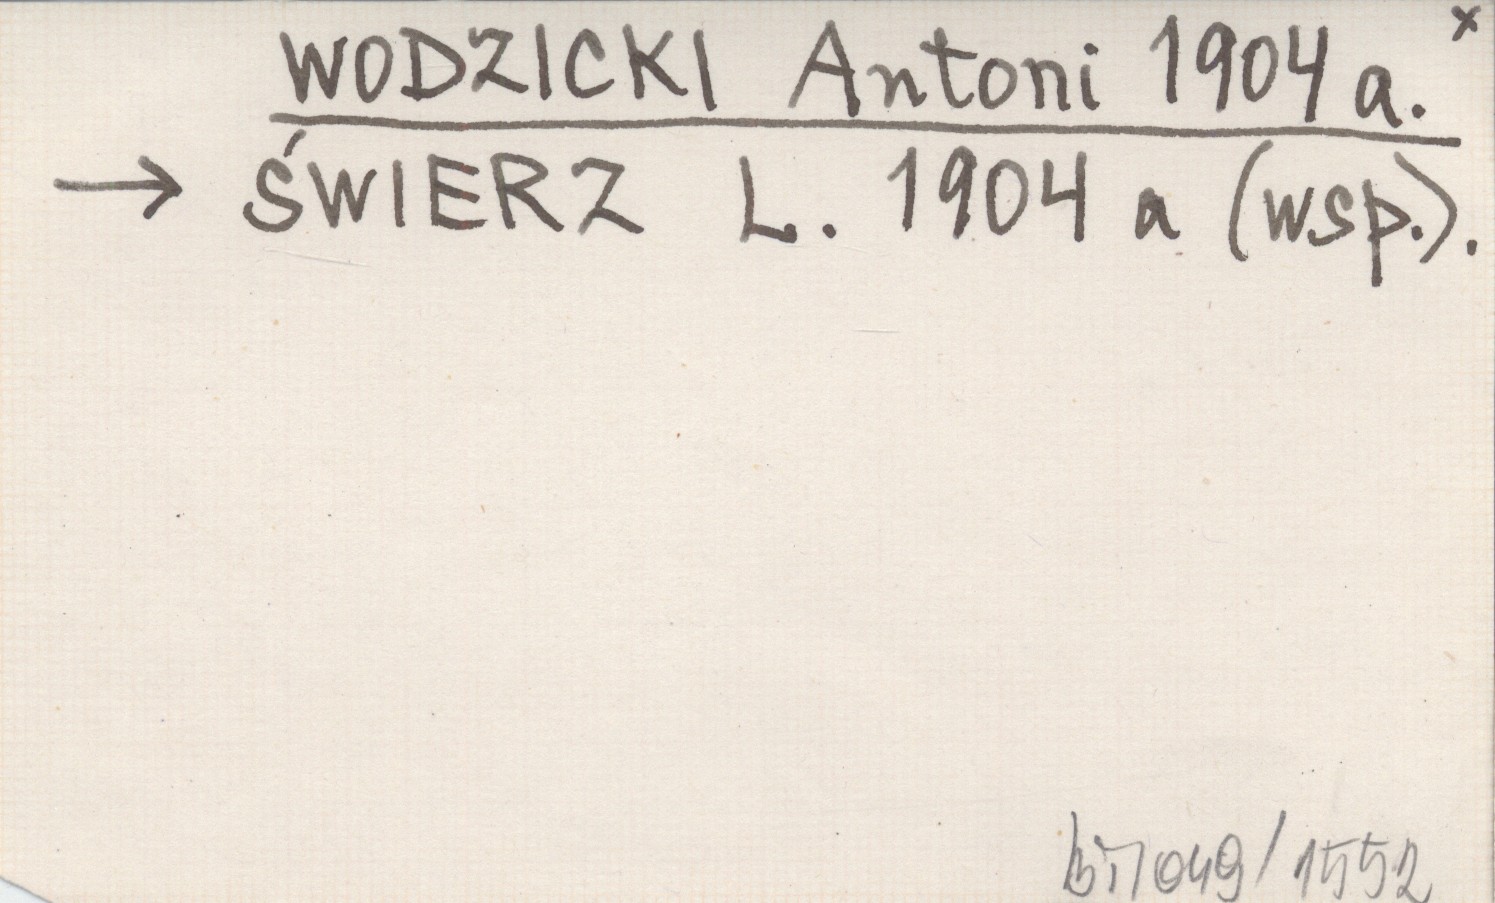 WODZICKI Antoni 1904 a. x
→ ŚWIERZ L. 1904 a (wsp.).
/1552